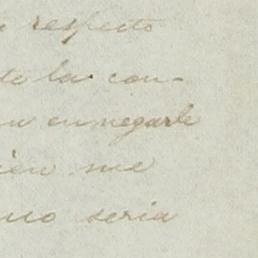 respecto
de la con-
en negarle
ien me
no seria